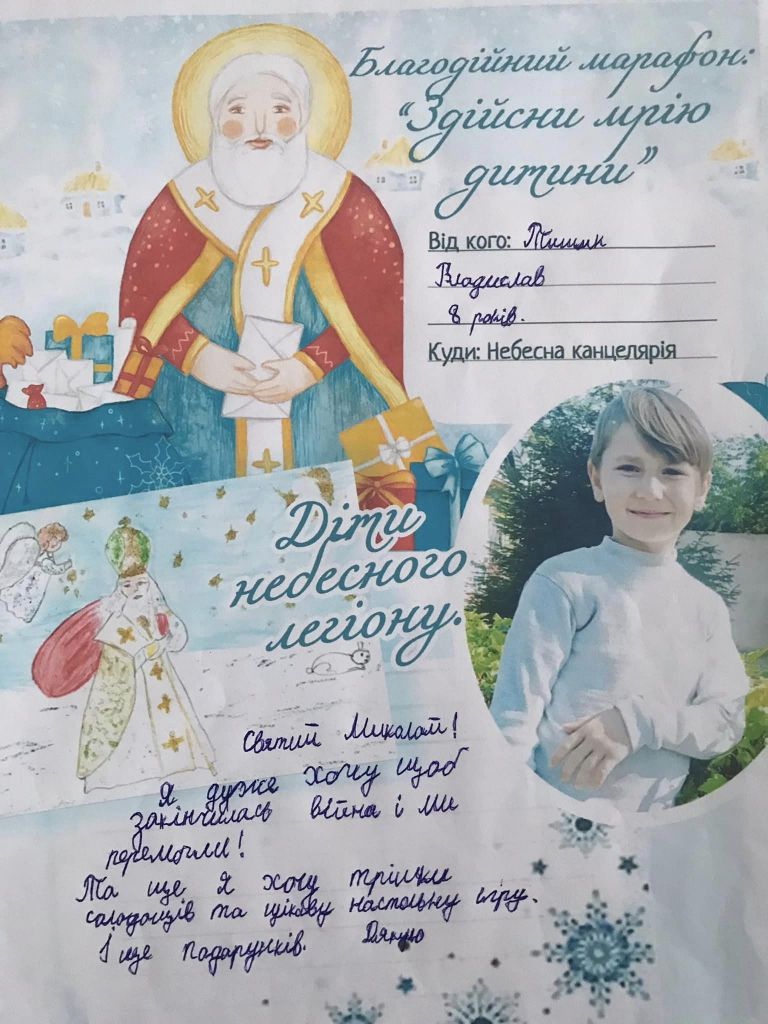 Благодійний марафон:
“Здійсни мрію
дитини”
Від кого:
Владислав
8 років.
Куди: Небесна канцелярія
Діти
небесного
легіону.
Святий Миколай!
Я дуже хочу щоб
закінчилась війна і ми
перемогли!
Та ще я хочу трішки
солодощів та цікаву настольну ігру.
І ще подарунків. Дякую